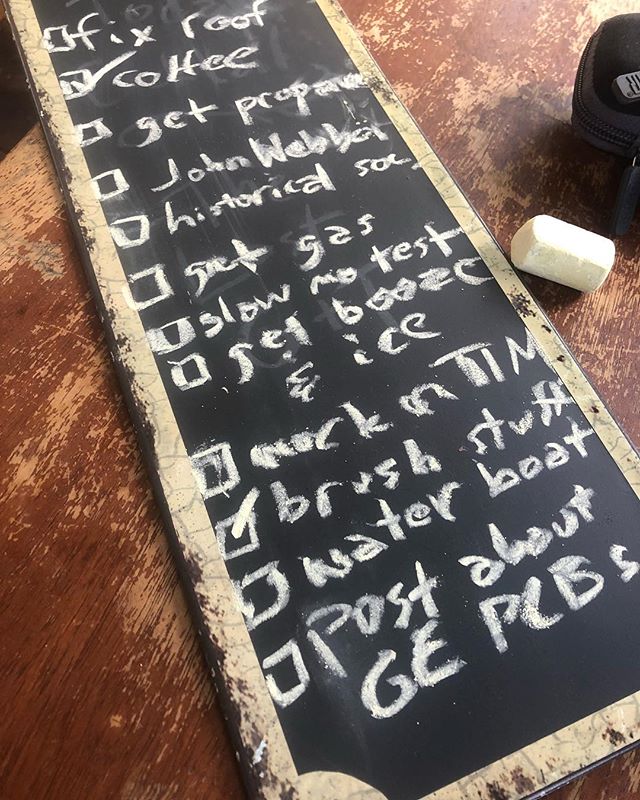 fix roof
coffee
get propane
John Webber
historical soc.
get gas
slow mo test
get booze
& ice
work on TIM
brush stuff
water boat
Post about
GE PCBs